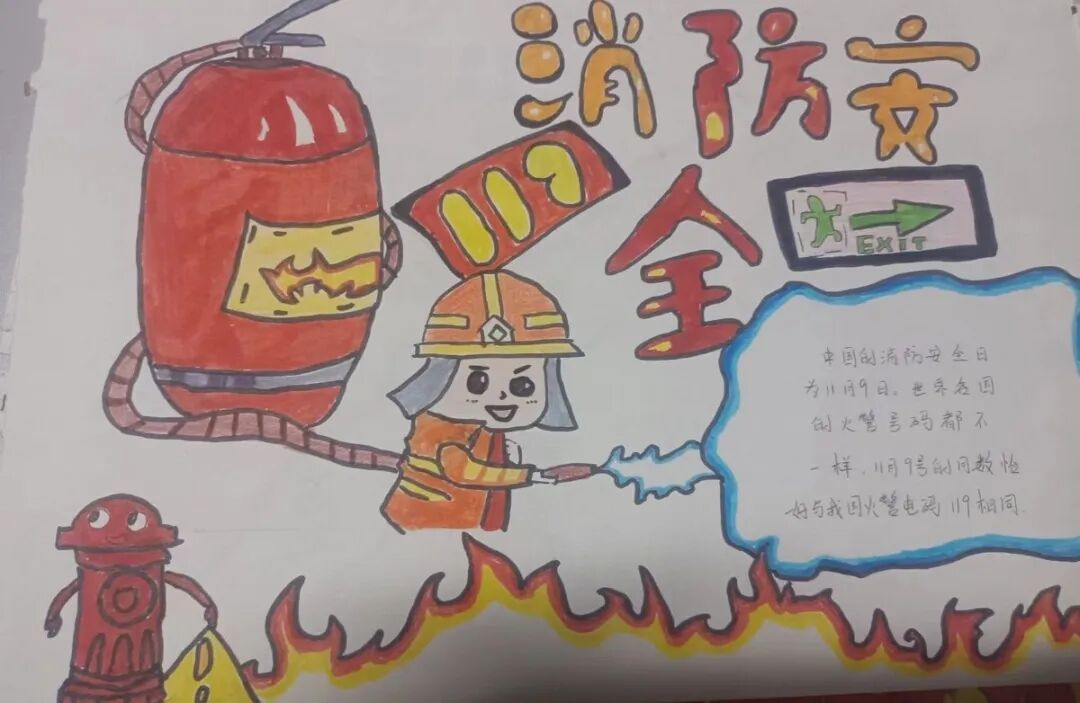 消防安
全
119
EXIT
中国的消防安全日
为11月9日。世界各国
的火警号码都不
一样，11月9号的月数恰
好与我国火警电码119相同.